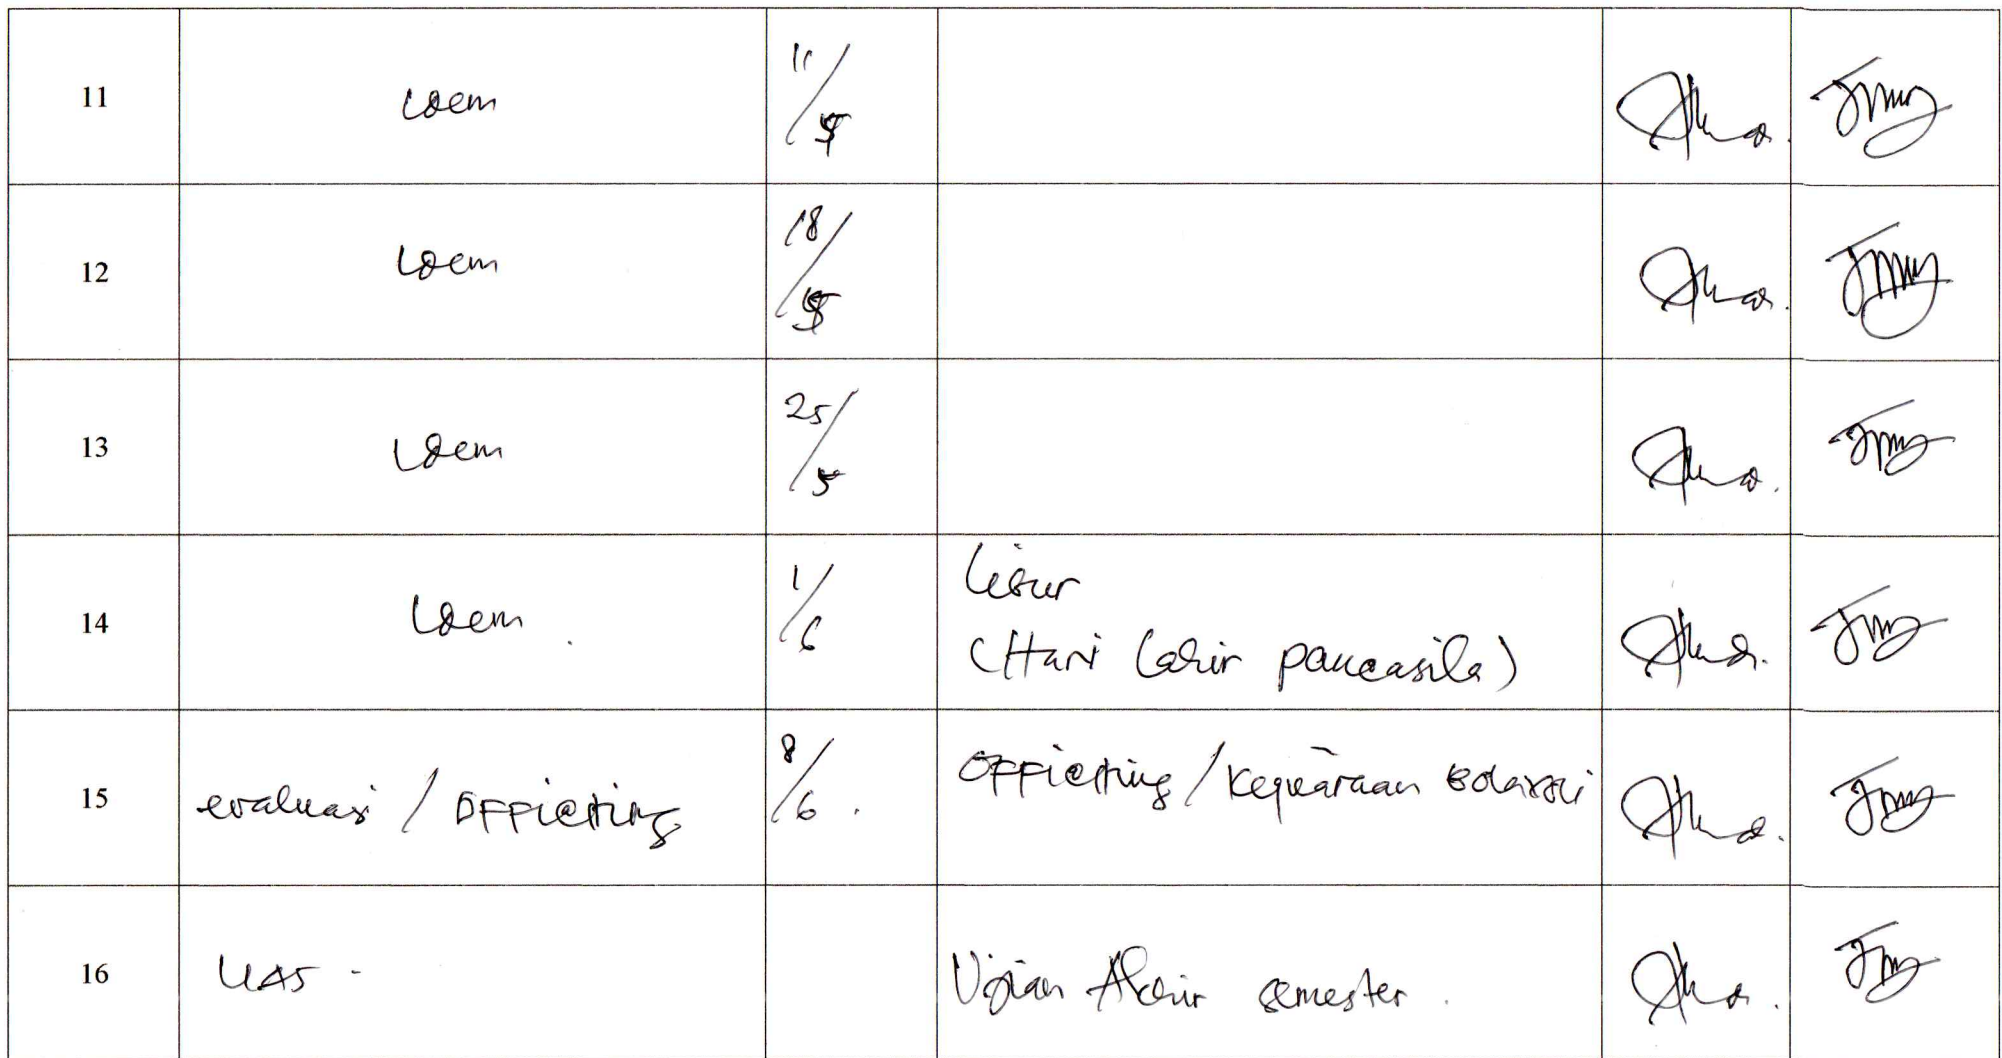 11 Idem 11/5
12 Idem 18/5
13 Idem 25/5
14 Idem 1/6 Libur
(Hari Lahir pancasila)
15 evaluasi / OFFicting 8/6 OFFicting / Kejuaraan
16 UAS Ujian Akhir semester